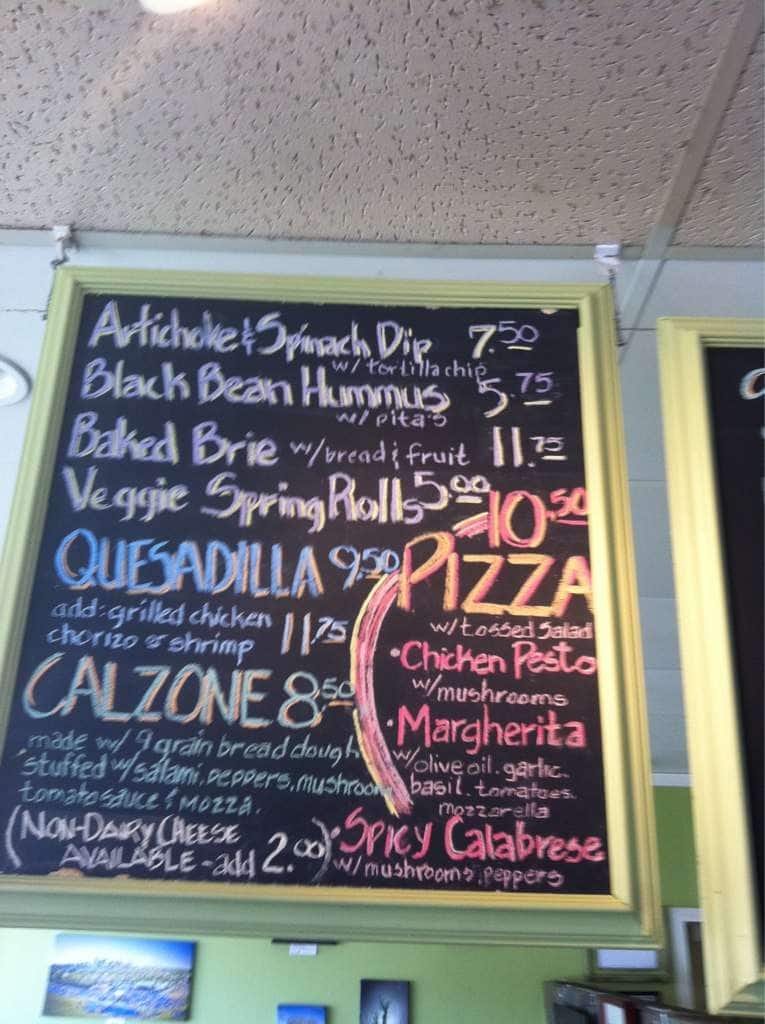 Artichoke & Spinach Dip 7.50
w/ tortilla chip
Black Bean Hummus 5.75
w/ pita's
Baked Brie w/bread & fruit 11.75
Veggie Spring Rolls 5.00
QUESADILLA 9.50
add: grilled chicken
chorizo or shrimp 11.75
CALZONE 8.50
made w/ 9 grain bread dough
stuffed w/ salami, peppers, mushroom
tomato sauce & mozza.
(NON-DAIRY CHEESE
AVAILABLE - add 2.00)
10.50
PIZZA
w/ tossed salad
• Chicken Pesto
w/mushrooms
• Margherita
w/ olive oil. garlic.
basil. tomatoes.
mozzarella
• SPICY Calabrese
w/ mushrooms, peppers